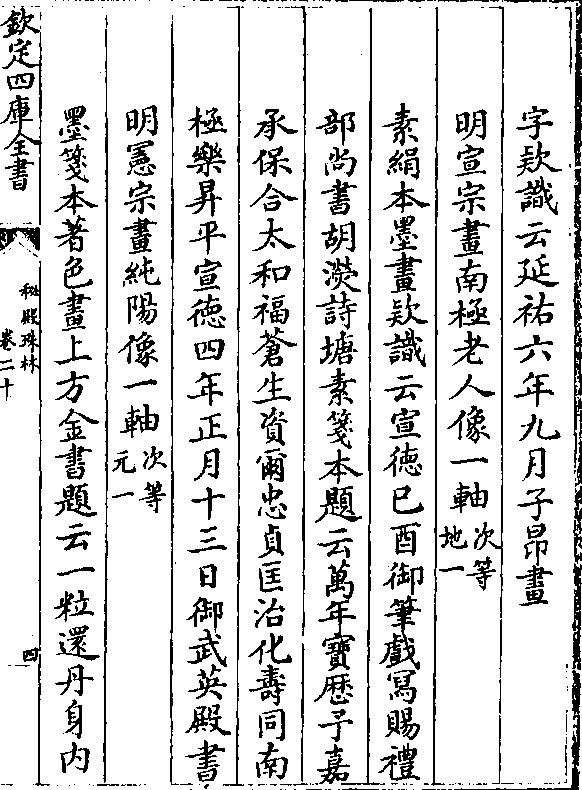 字欵識云延祐六年九月子昂畫
明宣宗畫南極老人像一軸次等地一
素絹本墨畫欵識云宣徳己酉御筆戲寫賜禮
部尚書胡濙詩塘素箋本題云萬年寶厯予嘉
承保合太和福蒼生資爾忠貞匡治化壽同南
極樂昇平宣徳四年正月十三日御武英殿書
明憲宗畫純陽像一軸次等元一
墨箋本著色畫上方金書題云一粒還丹身内
欽定四庫全書
秘殿珠林
卷二十
四